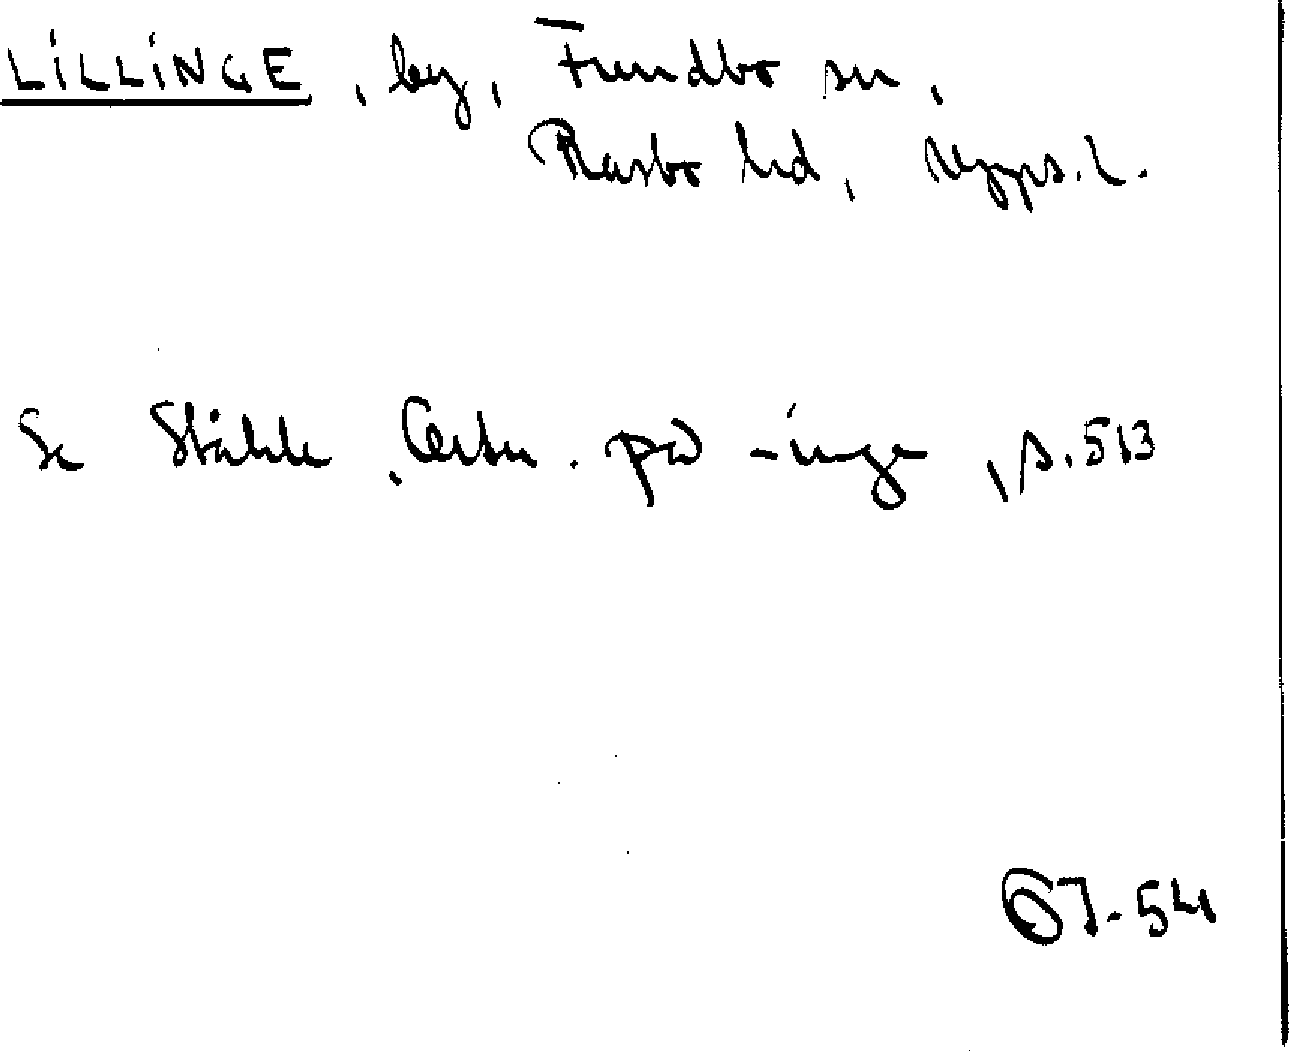 LILLINGE, by, Funbo sn,
Rasbo hd, Upps. l.
Se Ståhle, Ortn. på -inge, s. 513
67-54